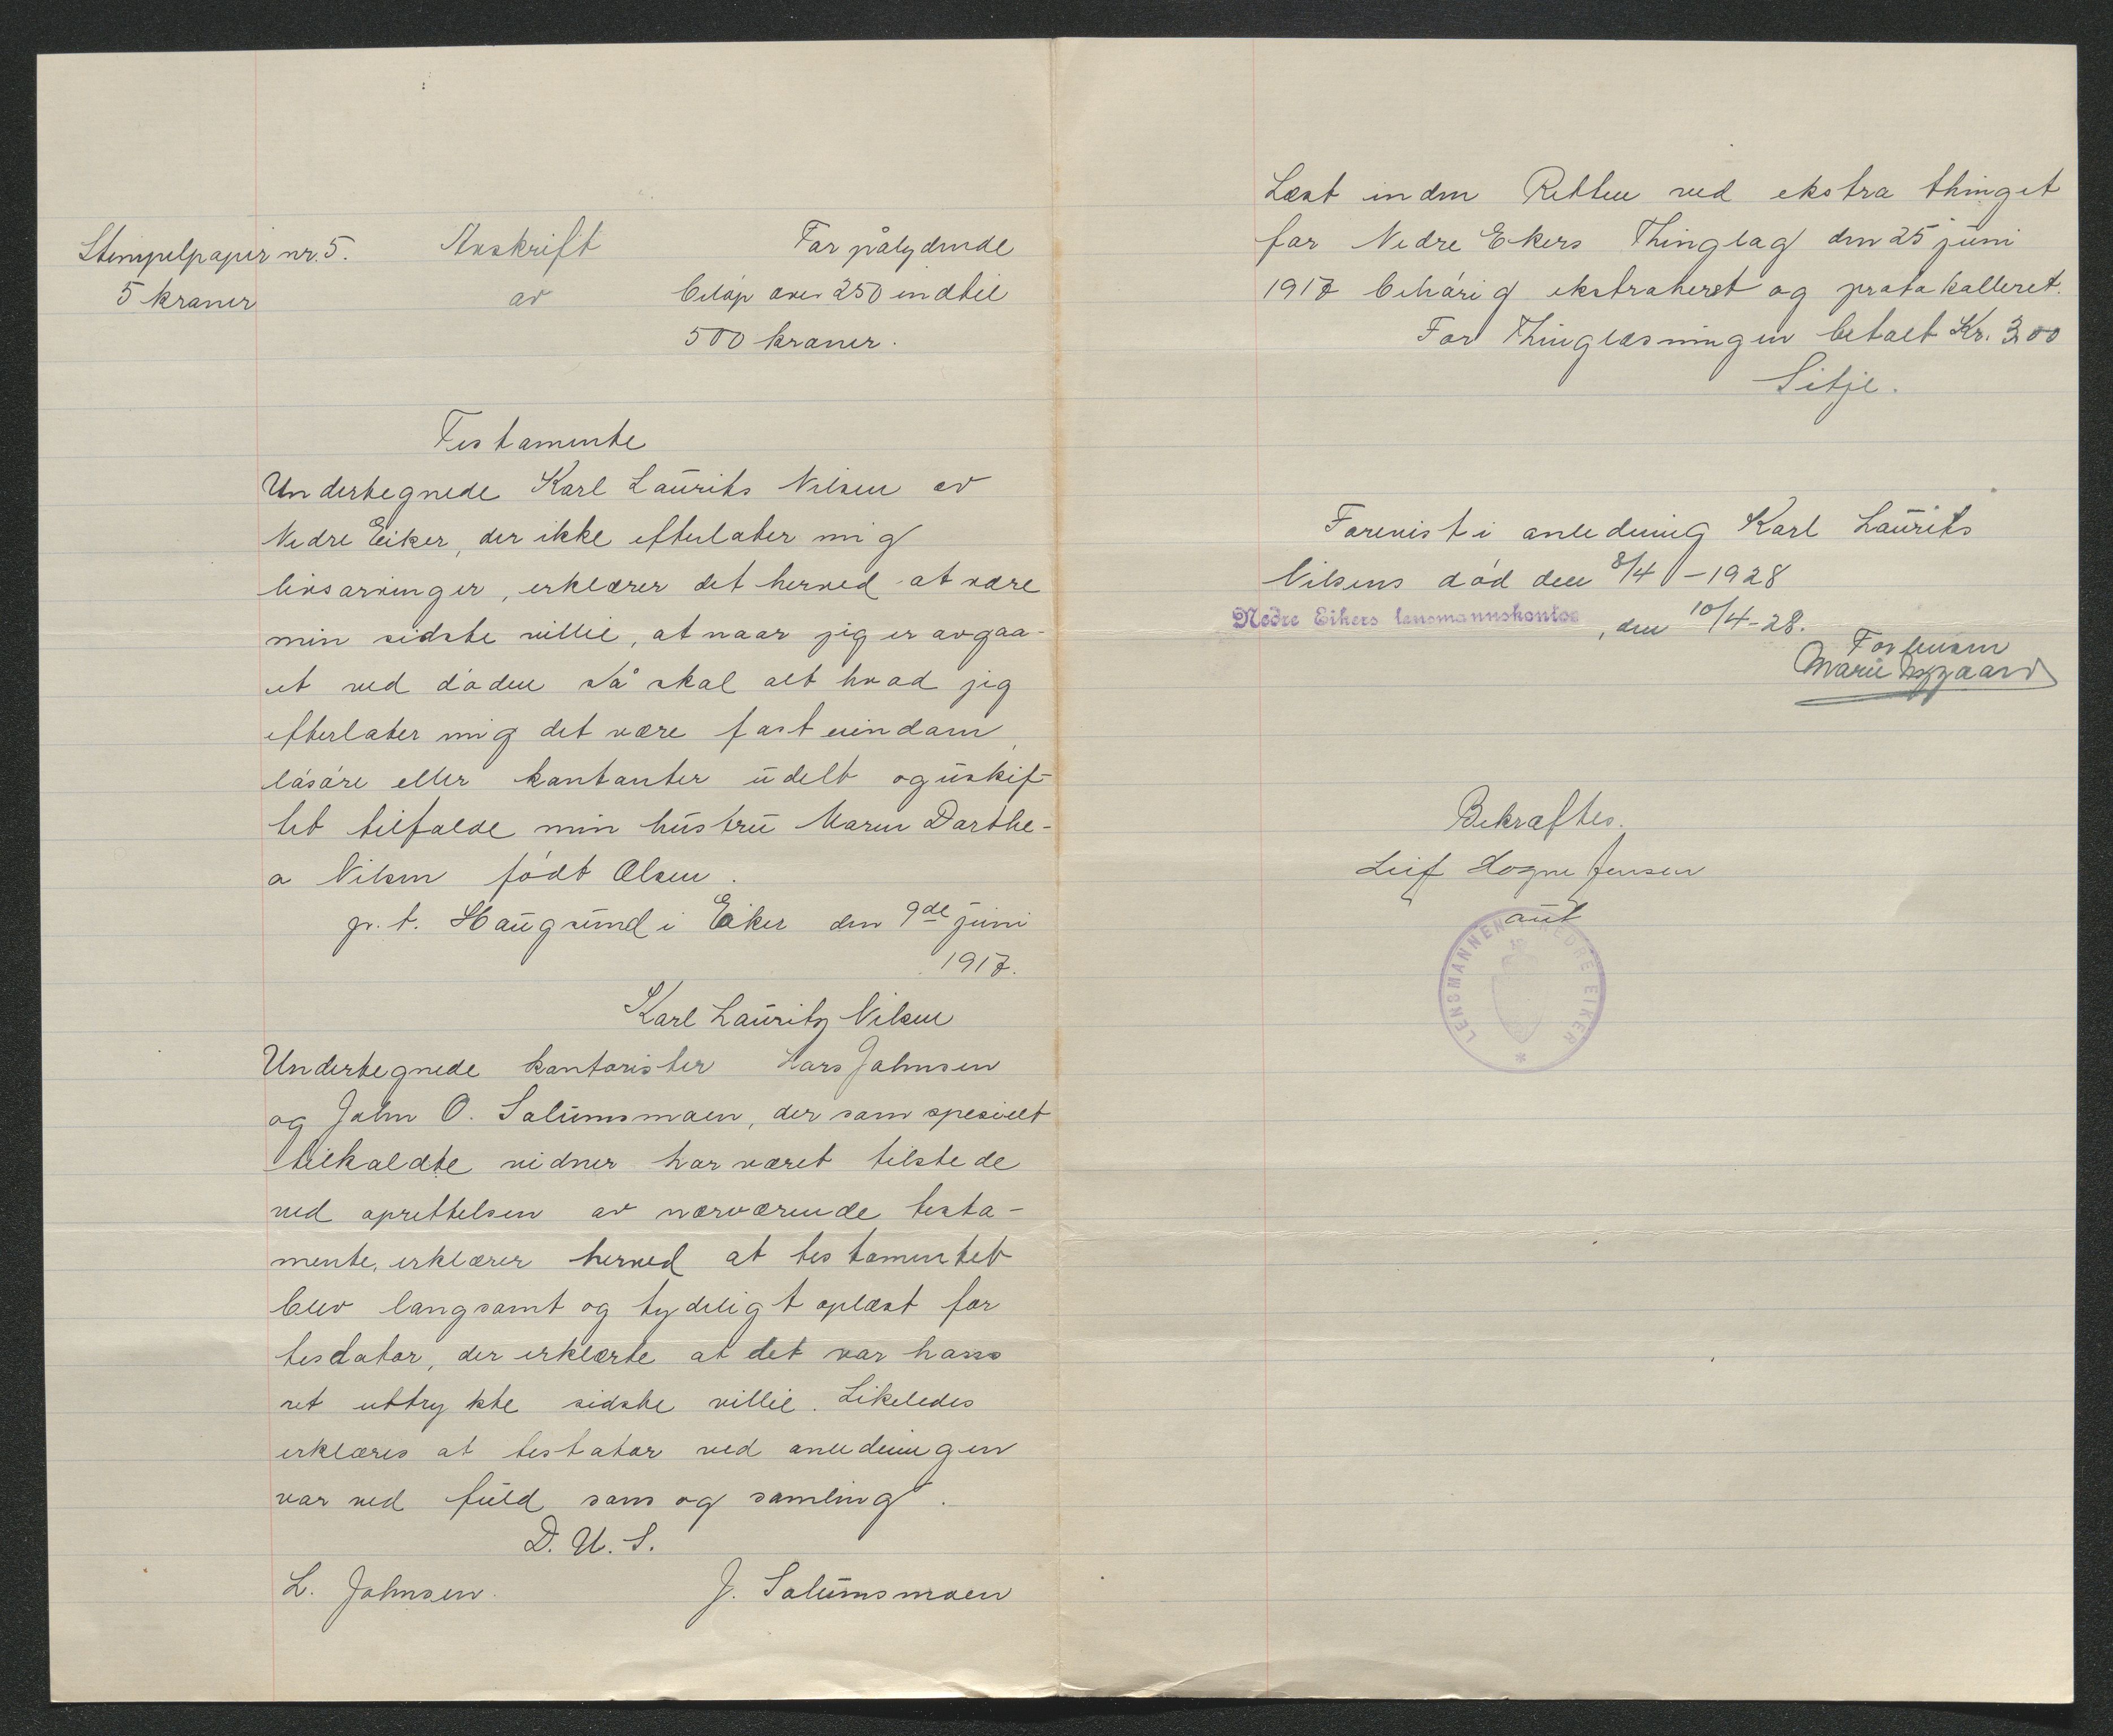 Stempelpapir nr. 5.
5 kroner
Avskrift
av
For pålydende
beløp over 250 indtil
500 kroner.
Testamente
Undertegnede Karl Laurits Nilsen av
Nedre Eiker, der ikke efterlater mig
livsarvinger, erklærer det herved at være
min sidste villie, at naar jeg er avgaa-
et ved døden så skal alt hvad jeg
efterlater mig det være fast eiendom,
løsøre eller kontanter udelt og uskif-
tet tilfalde min hustru Maren Dorthe-
a Nilsen født Olsen.
p. t. Haugsund i Eiker den 9de juni
1917.
Karl Lauritz Nilsen
Undertegnede kontorister Lars Johnsen
og John O. Solumsmoen, der som spesielt
tilkaldte vidner har været tilstede
ved oprettelsen av nærværende testa-
mente, erklærer herved at testamentet
blev langsomt og tydeligt oplæst for
testator, der erklærte at det var hans
ret uttrykte sidste villie. Likeledes
erklæres at testator ved anledningen
var ved fuld sans og samling.
D. U. S.
L. Johnsen. J. Solumsmoen
Læst inden Retten ved ekstra thinget
for Nedre Ekers Thinglag den 25 juni
1917 behørig ekstraheret og protokolleret.
For Thinglæsningen betalt Kr. 300
Litje.
Forevist i anledning Karl Laurits
Nilsens død den 8/4 - 1928
Nedre Eikers lensmannskontor, den 10/4-28.
For lensm
Marie
Bekræftes.
Leif Hogne Jensen
aut
LENSMANNEN I NEDRE EIKER *